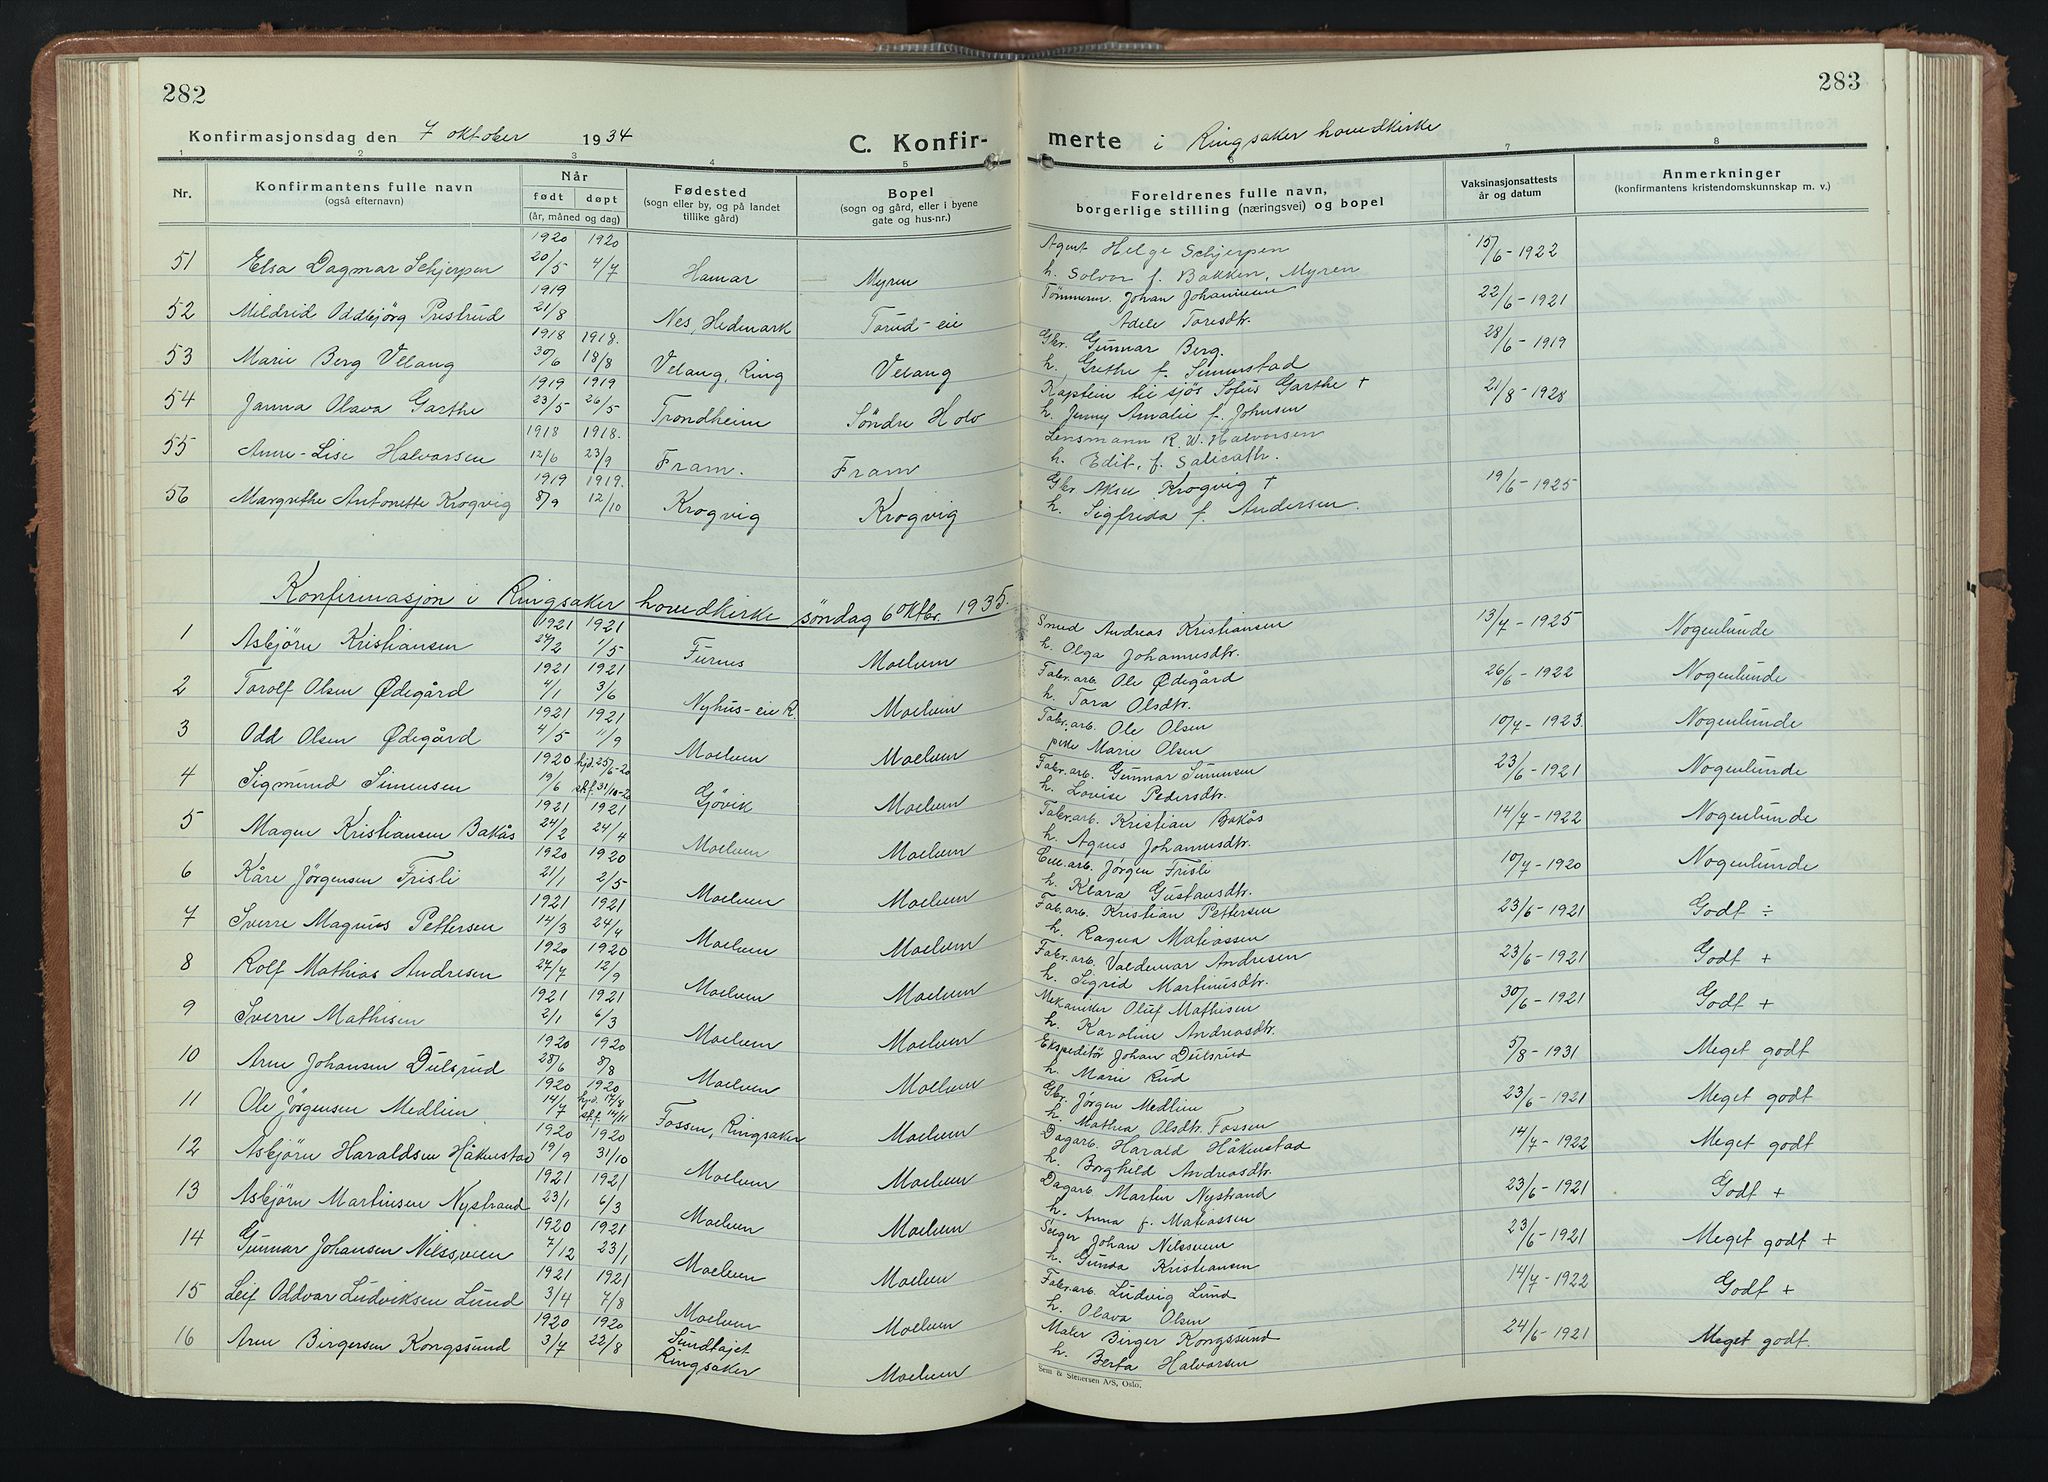 282
Konfirmasjonsdag den 7 oktober 1934
C. Konfir-
1 2 3 4 5
Nr.
Konfirmantens fulle navn
(også efternavn)
Når
født døpt
(år, måned og dag)
Fødested
(sogn eller by, og på landet
tillike gård)
Bopel
(sogn og gård, eller i byene
gate og hus-nr.)
1920 1920
51 Elsa Dagmar Schjerpen 20/5 4/7 Hamar Myren
1919
52 Mildrid Oddbjörg Pristrud 21/8 Nes, Hedmark Torud-eie
1918 1918.
53 Marie Berg Velang 30/6 18/8 Velang, Ring Velang
1919 1919
54 Janna Olava Garthe 23/5 26/5 Trondheim Søndre Hov
1918 1918.
55 Anne-Lise Halvorsen 12/6 23/9 Fram. Fram
1919 1919.
56 Margrethe Antonette Krogvig 8/9 12/10 Krogvig Krogvig
Konfirmasjon i Ringsaker hovedkirke søndag 6 oktbr. 1935.
1921 1921
1 Asbjörn Kristiansen 27/2 1/5 Furnes Moelven
1921 1921
2 Torolf Olsen Ødegård 4/1 3/6 Nyhus-eie R. Moelven
1921 1921
3 Odd Olsen Ødegård 4/5 11/9 Moelven Moelven
1920 hjd. 25/6-20
4 Sigmund Simensen 19/6 st.f. 31/10-20 Gjövik Moelven
1921 1921
5 Magne Kristiansen Bakås 24/2 24/4 Moelven Moelven
1920 1920
6 Kåre Jörgensen Frisli 21/1 2/5 Moelven Moelven
1921 1921
7 Sverre Magnus Pettersen 14/3 24/4 Moelven Moelven
1920 1920
8 Rolf Mathias Andresen 27/7 12/9 Moelven Moelven
1921 1921
9 Sverre Mathisen 2/1 6/3 Moelven Moelven
1920 1920
10 Arne Johansen Dulsrud 28/6 8/8 Moelven Moelven
1920 1920
11 Ole Jörgensen Medlien 14/7 hjd. 17/8 st.f. 14/11 Fossen, Ringsaker Moelven
1920 1920
12 Asbjörn Haraldsen Håkenstad 19/9 31/10 Moelven Moelven
1921 1921
13 Asbjörn Martinsen Nystrand 23/1 6/3 Moelven Moelven
1920 1921
14 Gunnar Johansen Nilssveen 7/12 23/1 Moelven Moelven
1921 1921
15 Leif Oddvar Ludviksen Lund 3/4 7/8 Moelven Moelven
1920 1920
16 Arne Birgersen Kongssund 3/7 22/8 Sundtøjet Ringsaker Moelven
283
merte i Ringsaker hovedkirke
6 7 8
Foreldrenes fulle navn,
borgerlige stilling (næringsvei) og bopel
Vaksinasjonsattests
år og datum
Anmerkninger
(konfirmantens kristendomskunnskap m. v.)
Agent Helge Schjerpen 15/6-1922
h. Solvor f. Bakken, Myren
Tömmerm. Johan Johannesen 22/6-1921
Adele Toresdtr.
Gbr. Gunnar Berg. 28/6-1919
h. Grethe f. Simenstad
Kaptein til sjös Sofus Garthe + 21/8-1928
h. Jenny Amalie f. Johnsen
Lensmann R. W. Halvorsen
h. Edit, f. Salicath.
Gbr. Aksel Krogvig + 19/6-1925
h. Sigfrida f. Andersen.
Smed Andreas Kristiansen 13/7-1925 Nogenlunde
h. Olga Johannesdtr.
Fabr.arb. Ole Ødegård 26/6-1922 Nogenlunde
h. Tora Olsdtr.
Fabr.arb. Ole Olsen 10/7-1923. Nogenlunde
pike Marie Olsen
Fabr.arb. Gunnar Simensen 23/6-1921 Nogenlunde
h. Lovise Pedersdtr.
Fabr.arb. Kristian Bakås 14/7-1922 Nogenlunde
h. Agnes Johannesdtr.
Cell.arb. Jörgen Frisli 10/7-1920 Nogenlunde
h. Klara Gustavsdtr.
Fab.arb. Kristian Pettersen 23/6-1921 Godt ÷
h. Ragna Matiassen
Fabr.arb. Valdemar Andresen 23/6-1921 Godt +
h. Sigrid Martinusdtr.
Mekaniker Oluf Mathisen 30/6-1921 Godt +
h. Karoline Andreasdtr.
Ekspeditör Johan Dulsrud 5/8-1931 Meget godt
h. Marie Rud
Gbr. Jörgen Medlien 23/6-1921 Meget godt
h. Mathea Olsdtr. Fossen
Dagarb. Harald Håkenstad 14/7-1922 Meget godt
h. Borghild Andreasdtr.
Dagarb. Martin Nystrand 23/6-1921 Godt +
h. Anna f. Matiassen
Seiger Johan Nilssveen 23/6-1921 Meget godt +
h. Gunda Kristiansen
Fabr.arb. Ludvig Lund 14/7-1922 Godt +
h. Olava Olsen
Maler Birger Kongssund 24/6-1921 Meget godt.
h. Berta Halvorsen
Sem & Stenersen A/S, Oslo.